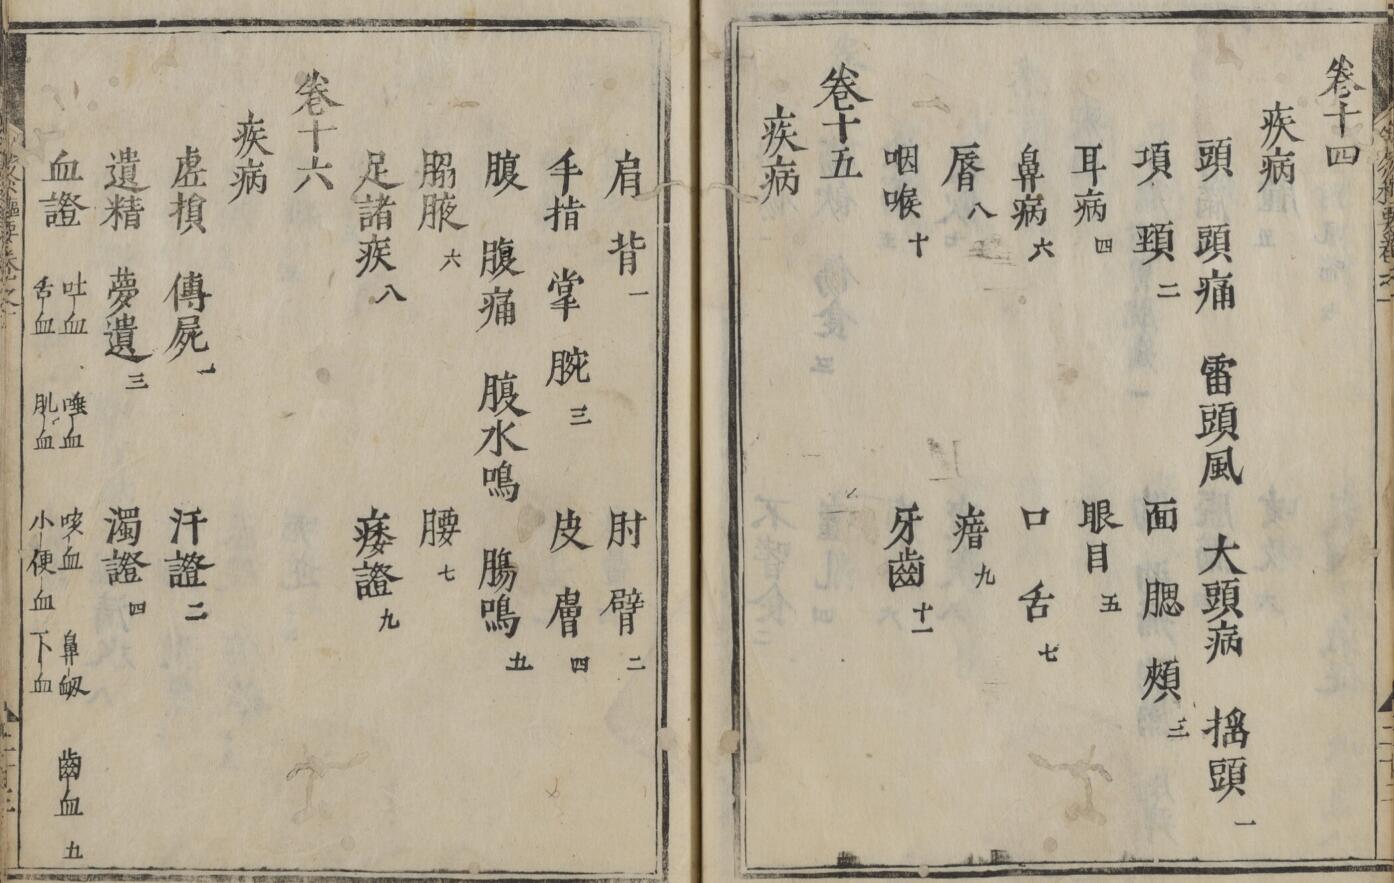 卷十四
疾病
頭 頭痛 雷頭風 大頭病 搖頭 一
項 頸 二 面 腮 頰 三
耳病 四 眼目 五
鼻病 六 口 舌 七
脣 八 瘖 九
咽喉 十 牙齒 十一
卷十五
疾病
肩 背 一 肘 臂 二
手指 掌 腕 三 皮 膚 四
腹 腹痛 腹水鳴 腸鳴 五
脇腋 六 腰 七
足諸疾 八 痿證 九
卷十六
疾病
虛損 傳屍 一 汗證 二
遺精 夢遺 三 濁證 四
血證 吐血 唾血 咳血 鼻衂 齒血 五
舌血 肌血 小便血 下血